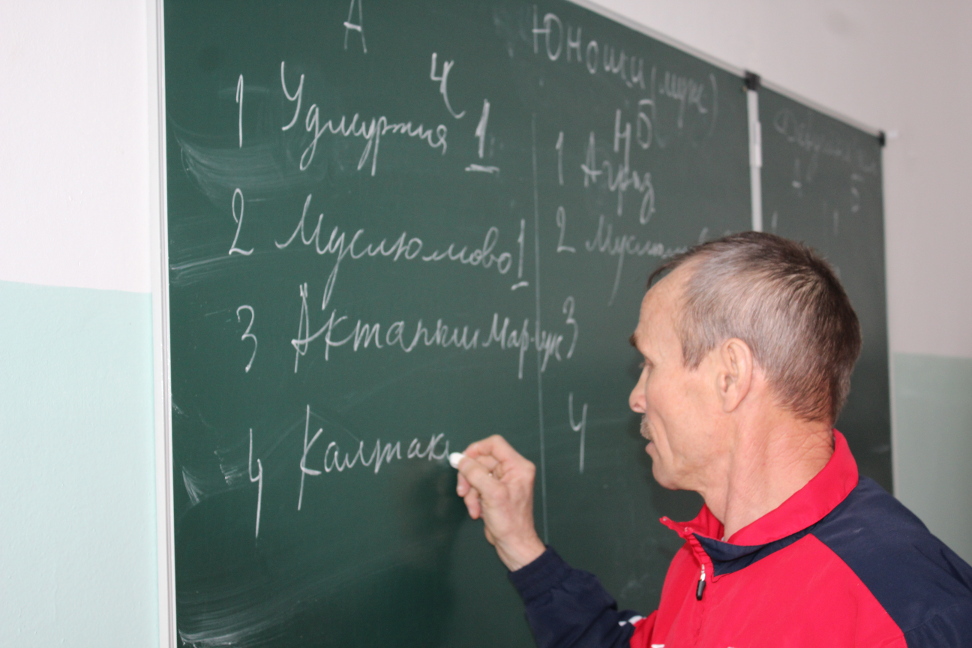 А
Юноши (муж)
4
1 Удмуртия 1
2 Муслюмово 1
3 Актаныш
4 Калтак
1 Агрыз
2 Муслюм
3
4